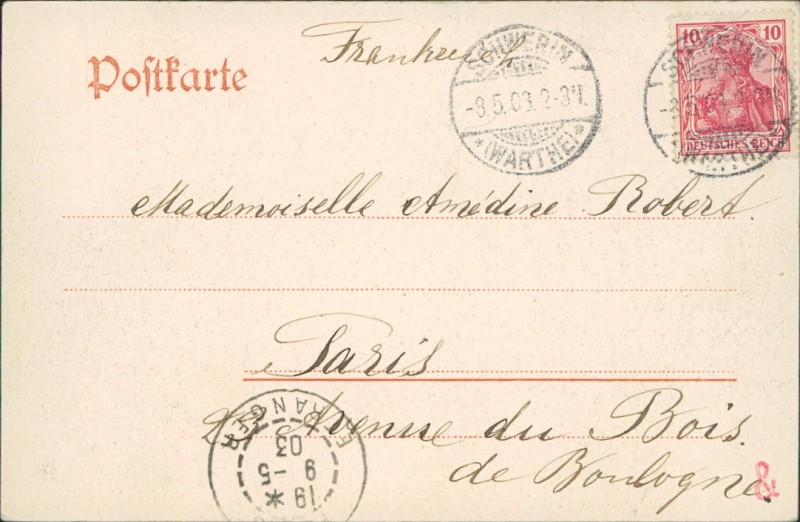 Postkarte
Frankreich
SCHWERIN
-8.5.03.2-3N.
*(WARTHE)*
10 10
DEUTSCHES REICH
SCHWERIN
Mademoiselle Amédine Robert.
Paris
23 Avenue du Bois.
de Boulogne.
&
ETRANGER
03
9 - 5
19 *